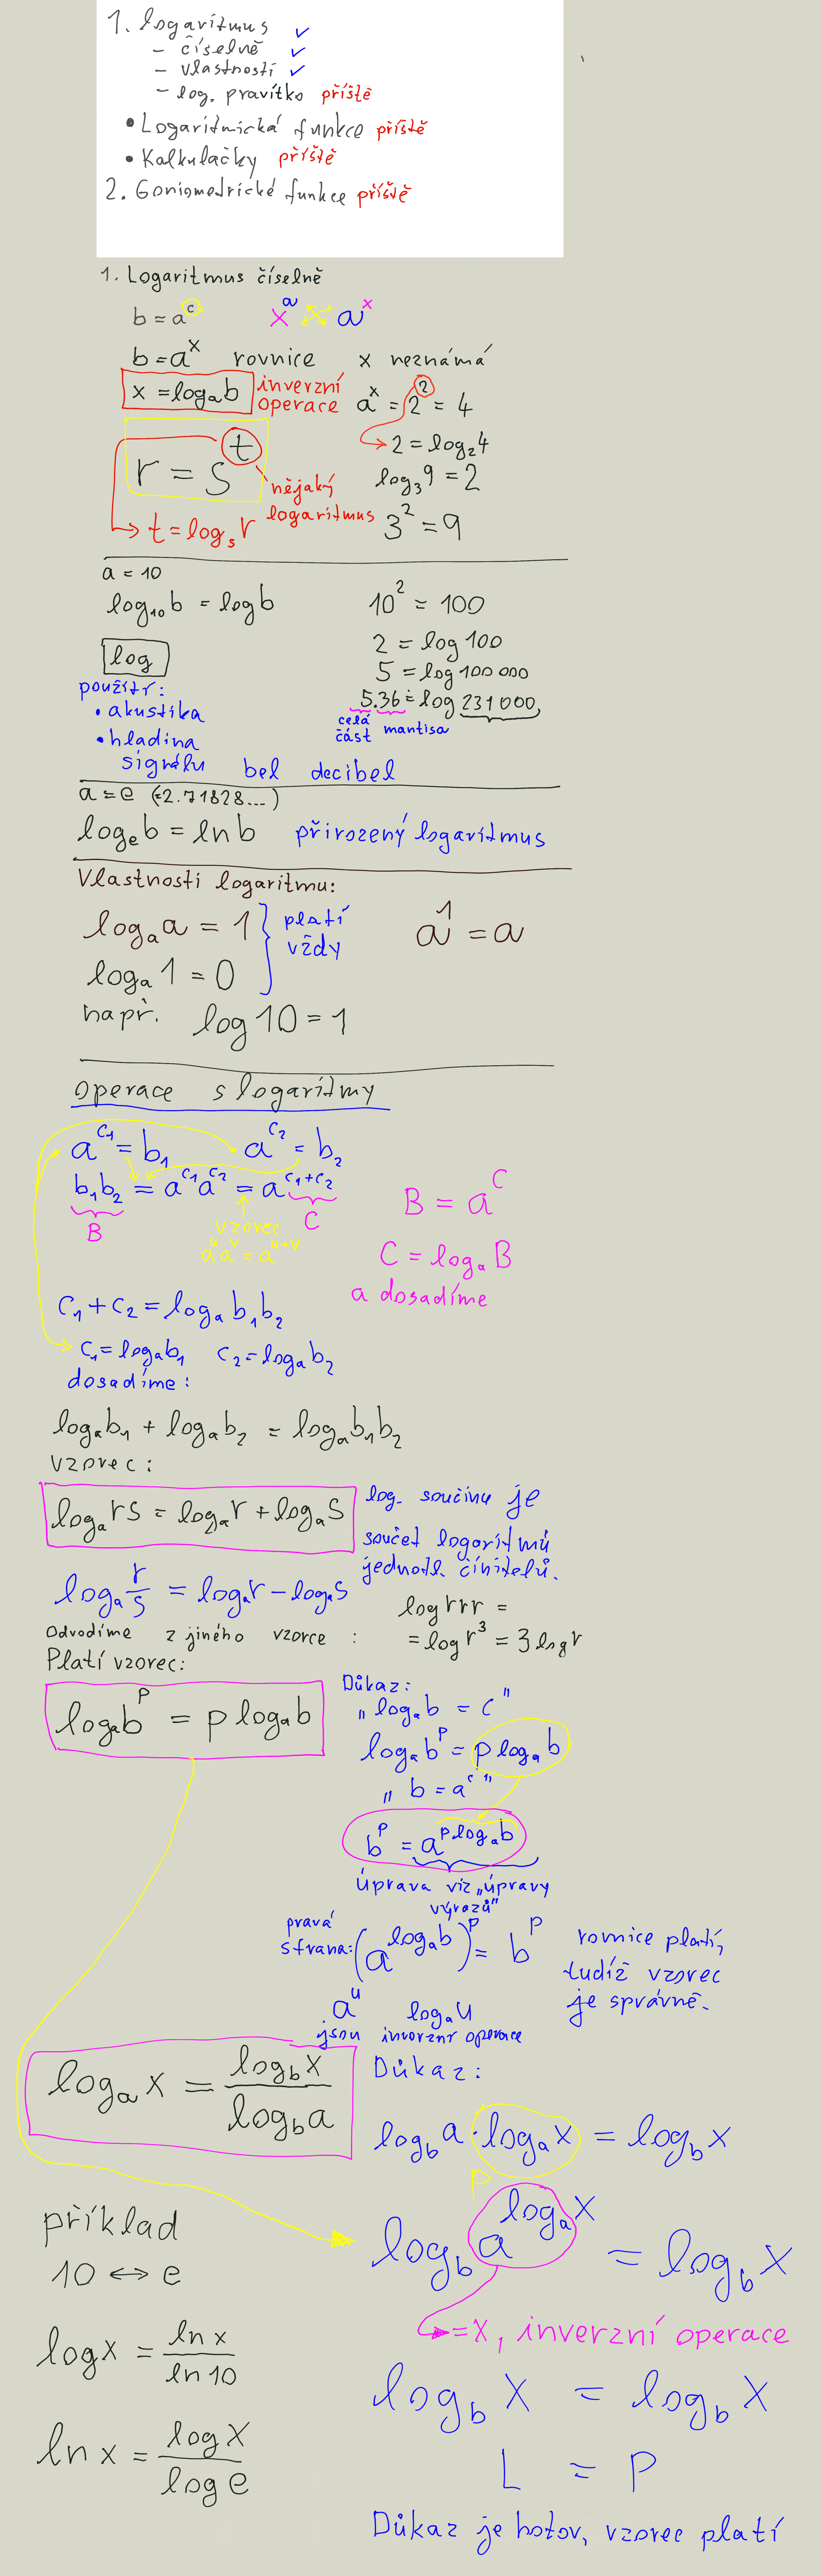 1. logaritmus ✓
- číselně ✓
- vlastnosti ✓
- log. pravítko příště
• Logaritmická funkce příště
• Kalkulačky příště
2. Goniometrické funkce příště
1. Logaritmus číselně
b = a^c x^a a^x
b = a^x rovnice x neznámá
x = log_a b inverzní operace
a^x = 2^2 = 4
2 = log_2 4
r = s^t nějaký logaritmus
log_3 9 = 2
t = log_s r
3^2 = 9
a = 10
log_10 b = log b
10^2 = 100
log
2 = log 100
5 = log 100 000
5.36 ≐ log 231 000,
celá část mantisa
použití:
• akustika
• hladina
signálu bel decibel
a = e (=2.71828...)
log_e b = ln b přirozený logaritmus
Vlastnosti logaritmu:
log_a a = 1 } platí a^1 = a
log_a 1 = 0 } vždy
např. log 10 = 1
operace s logaritmy
a^c₁ = b₁ a^c₂ = b₂
b₁b₂ = a^c₁ a^c₂ = a^(c₁+c₂)
B C
vzorec
a^u a^v = a^(u+v)
B = a^C
C = log_a B
a dosadíme
c₁ + c₂ = log_a b₁b₂
c₁ = log_a b₁ c₂ = log_a b₂
dosadíme:
log_a b₁ + log_a b₂ = log_a b₁b₂
vzorec:
log_a rs = log_a r + log_a s
log. součinu je
součet logaritmů
jednotl. činitelů.
log_a r/s = log_a r - log_a s
log rrr =
= log r^3 = 3 log r
Odvodíme z jiného vzorce:
Platí vzorec:
log_a b^p = p log_a b
Důkaz:
„log_a b = c"
log_a b^p = p log_a b
„b = a^c"
b^p = a^(p log_a b)
úprava viz „úpravy
výrazů"
pravá
strana: (a^(log_a b))^p = b^p
rovnice platí,
tudíž vzorec
je správně.
a^u log_a u
jsou inverzní operace
log_a x = log_b x / log_b a
Důkaz:
log_b a · log_a x = log_b x
p
log_b a^(log_a x) = log_b x
= x, inverzní operace
log_b x = log_b x
L = P
Důkaz je hotov, vzorec platí
příklad
10 ↔ e
log x = ln x / ln 10
ln x = log x / log e